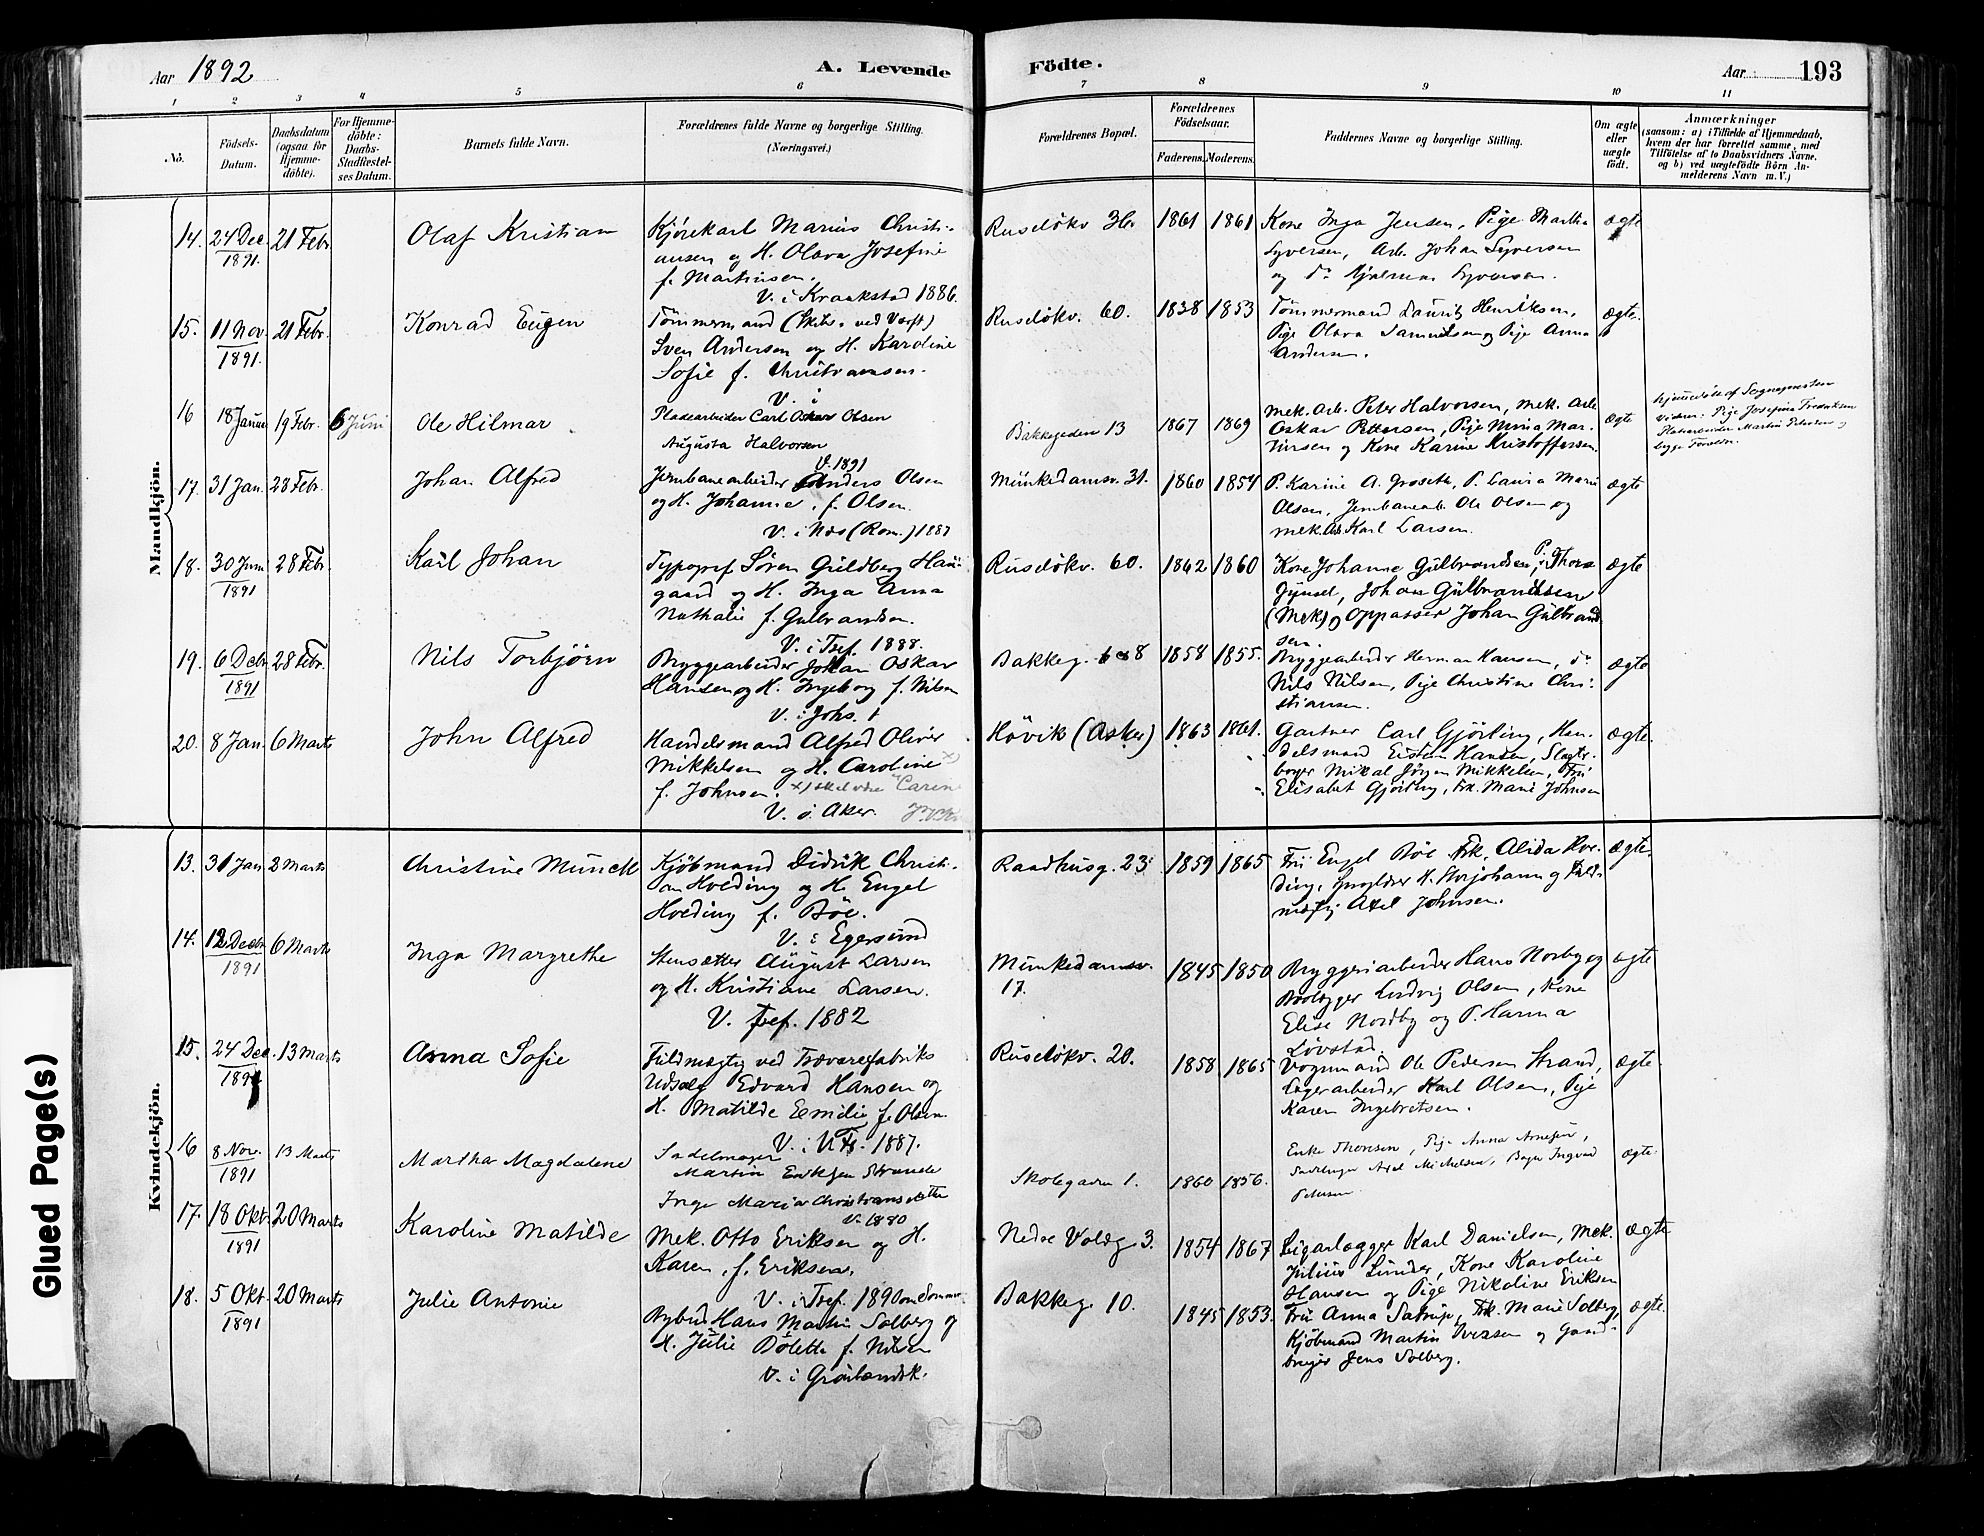 Aar 1892
A. Levende
Födte.
Aar 193
1 2 3 4 5 6 7 8 9 10 11
No.
Födsels-
Datum.
Daabsdatum
(ogsaa for
Hjemme-
döbte).
For Hjemme-
döbte:
Daabs-
Stadfæstel-
ses Datum.
Barnets fulde Navn.
Forældrenes fulde Navne og borgerlige Stilling.
(Næringsvei.)
Forældrenes Bopæl.
Forældrenes
Födselsaar.
Faderens. Moderens.
Faddernes Navne og borgerlige Stilling.
Om ægte
eller
uægte
födt.
Anmærkninger
(saasom: a) i Tilfælde af Hjemmedaab,
hvem der har forrettet samme, med
Tilföielse af to Daabsvidners Navne,
og b) ved uægtefödte Börn An-
melderens Navn m. V.)
Mandkjön.
14. 24 Dec. 1891. 21 Febr. Olaf Kristian
Kjörekarl Marius Christi-
ansen og H. Olava Josefine
f. Martinsen.
V. i Kraakstad 1886.
Ruselökv 36 1861 1861
Kone Inga Jensen, Pige Martha
Syversen, Arb. Johan Syversen
og do Hjalmar Syversen.
ægte
15. 11 Nov. 1891. 21 Febr. Konrad Eugen
Tömmermand (Skibs. ved Værft)
Sven Andersen og H. Karoline
Sofie f. Christiansen.
V. i
Ruselökv. 60. 1838 1853
Tömmermand Laurits Henriksen,
Pige Olava Samuelsen og Pige Anna
Andersen.
ægte.
16 18 Januar 19 Febr. 6 Juni Ole Hilmar
Pladearbeider Carl Oskar Olsen
Augusta Halvorsen
V. 1891
Bakkegaden 13 1867 1869
Mek. Arb. Peter Halvorsen, Mek. Arb.
Oskar Pettersen, Pige Mina Mar-
tinsen og Kone Karine Kristoffersen
ægte
Hjemmedöbt af Sognepresten
Vidner: Pige Josefine Fredriksen
Pladearbeider Martin Petersen og
begge Forældre.
17. 31 Jan. 28 Febr. Johan Alfred
Jernbanearbeider Anders Olsen
og H. Johanne, f. Olsen.
V. i Næs (Rom.) 1887
Munkedamsv. 31. 1860 1854
P. Karine A. Groseth, P. Laura Marie
Olsen, Jernbanearb. Ole Olsen og
mek. Arb. Karl Larsen.
ægte
18. 30 Juni 1891 28 Febr. Karl Johan
Typograf Sören Guldberg Hau-
gaard og H. Inga Anna
Nathalie f. Gulbrandsen.
V. i Tref. 1888.
Ruselökv. 60. 1862 1860
Kone Johanne Gulbrandsen, P. Thora
Gjensel, Johan Gulbrandsen
(Mek) og Oppasser Johan Gulbrand
sen.
ægte
19. 6 Debr. 1891 28 Febr. Nils Torbjörn
Bryggearbeider Johan Oskar
Hansen og H. Ingeborg f. Nilsen
V. i Johs. t
Bakkeg. 6 & 8 1858 1855.
Bryggearbeider Herman Hansen, do
Nils Nilsen, Pige Christine Chri-
stiansen.
ægte
20. 8 Jan. 6 Marts John Alfred
Handelsmand Alfred Oliver
Mikkelsen og H. Caroline x)
f. Johnsen. x) skal være "Carin
V. i Aker.
Hövik (Asker) 1863 1861.
Gartner Carl Gjörling, Han-
delsmand Eistein Hansen, Slagter-
borger Mikal Jörgen Mikkelsen, Fru
Elisabet Gjörling, Frk. Marie Johnsen
ægte.
Kvindekjön.
13. 31 Jan 2 Marts Christine Munck
Kjöbmand Didrik Christi-
an Hveding og H. Engel
Hveding f. Böe.
V. i Egersund
Raadhusg. 23 1859 1865
Fru Engel Böe Frk. Alida Hve-
ding, H. Storjohann og Fuld-
mægtig Axel Johnsen.
ægte.
14. 12 Decbr. 1891 6 Marts Inga Margrethe
Stensætter August Larsen
og H. Kristiane Larsen.
V. Tref. 1882
Munkedamsv.
17. 1845 1850
Bryggeriarbeider Hans Norby og
Brolægger Ludvig Olsen, Kone
Elise Nordby og P. Hanna
Lövstad.
ægte
15. 24 Dec. 1891 13 Marts Anna Sofie
Fuldmægtig ved Trævarefabriks
Udsalg Edvard Hansen og
H. Matilde Emilie f. Olsen.
V. i V. Fr. 1887.
Ruselökv. 20. 1858 1865
Vognmand Ole Pedersen Strand,
Lagerarbeider Karl Olsen, Pige
Karen Ingebretsen.
ægte.
16 8 Nov. 1891 13 Marts Martha Magdalene
Sadelmager
Martin Eriksen Strande
Inga Maria Christiansdatter
V. 1880
Skolegaden 1. 1860 1856.
Enke Thomsen, Pige Anna Arnesen,
Sadelmager Axel Michelsen, Bager Ingvad
Petersen
ægte.
17. 18 Okt. 1891 20 Marts Karoline Matilde
Mek. Otto Eriksen og H.
Karen, f. Eriksen.
V. i Tref. 1890
Nedre Voldg 3. 1854 1867
Cigarlægger Karl Danielsen, Mek.
Julius Lunder, Kone Karoline
Hansen og Pige Nikoline Eriksen
ægte
18. 5 Okt. 1891 20 Marts Julie Antonie
Bybud Hans Martin Solberg og
H. Julie Bolette f. Nilsen
V. i Grönlandsk.
Bakkeg. 10. 1845 1853.
Fru Anna Satrup, Frk. Marie Solberg,
Kjöbmand Martin Iversen og Gaard-
bruger Jens Solberg.
ægte.
Glued Page(s)